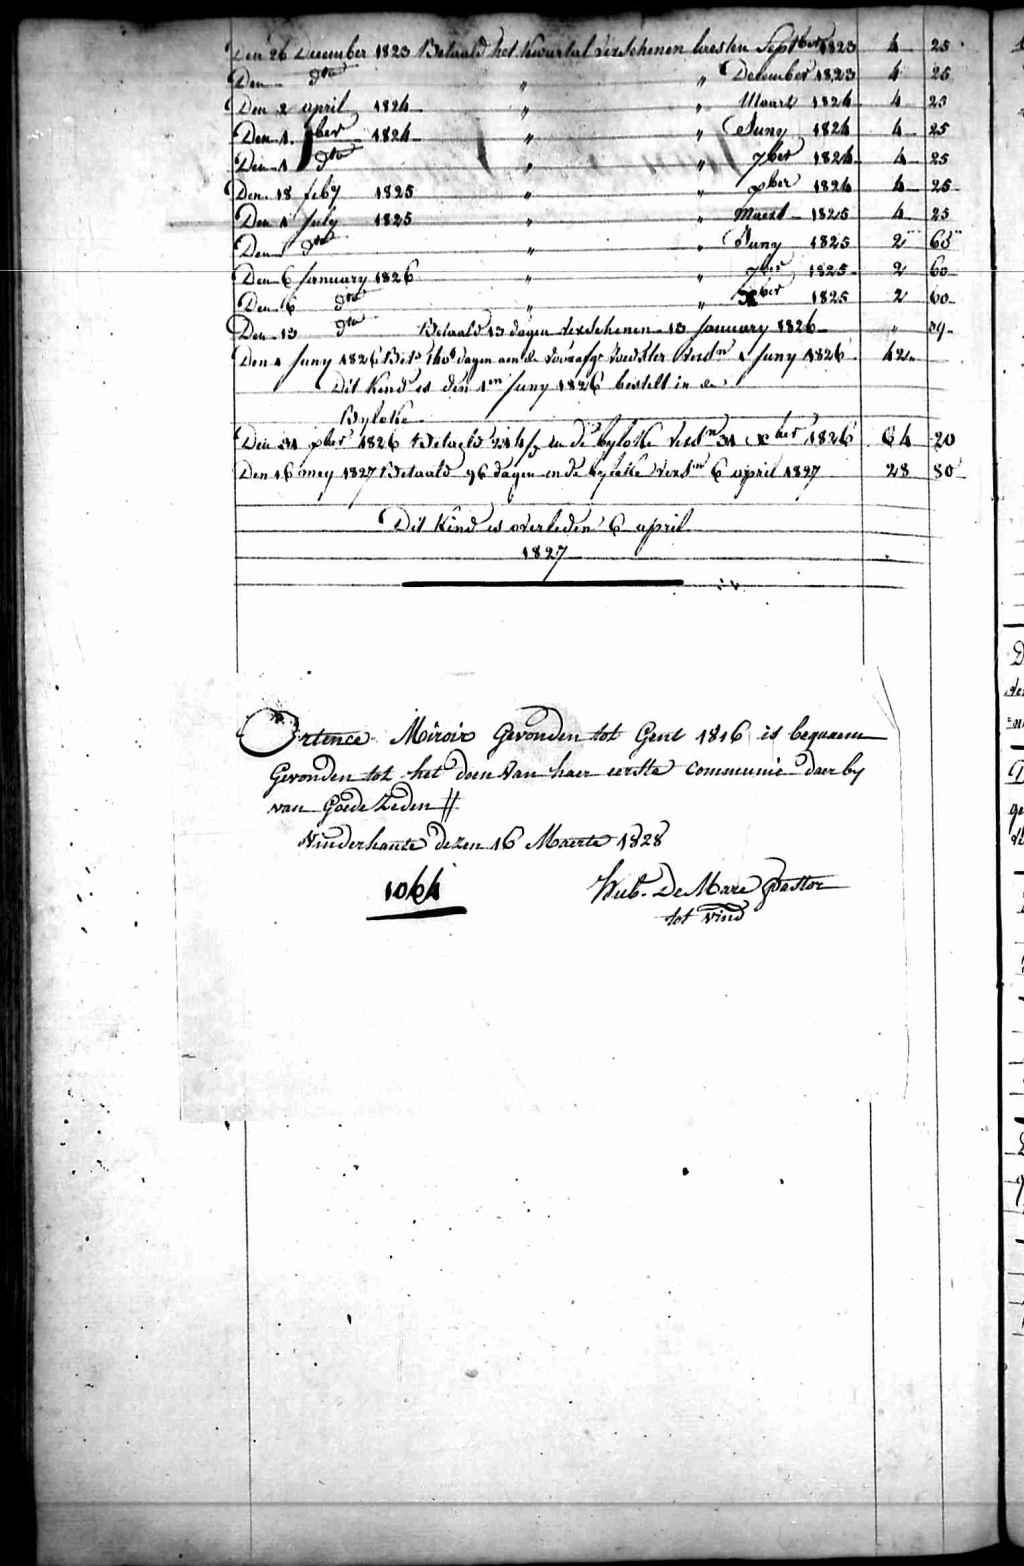 Den 26 December 1823 Betaald het kwartal verschenen lresten Septber 1823 4 25
Den dto " " December 1823 4 25
Den 2 april 1824 " " Maart 1824 4 25
Den 1 8ber 1824 " " Juny 1824 4 25
Den 1 dto " " 7ber 1824 4 25
Den 18 feby 1825 " " xber 1824 4 25
Den 1 July 1825 " " Maert 1825 4 25
Den dto " " Juny 1825 2 65
Den 6 January 1826 " " 7ber 1825 2 60
Den 6 dto " " xber 1825 2 60
Den 13 dto Betaald 13 dagen verschenen 13 January 1826 " 39
Den 1 Juny 1826 dagen aen de 1 Juny 1826 42
Dit Kind is den 1en Juny 1826 bestelt in de
Byloke
Den 31 xber 1826 Betaeld 214 in de byloke 31 xber 1826 64 20
Den 16 mey 1827 Betaald 96 dagen in de byloke 6 april 1827 28 80
Dit Kind is overleden 6 april
1827
Ortence Miroir Gevonden tot Gent 1816 is bequaem
Gevonden tot het doen van haer eerste communie daer by
van Goede Zeden //
Vinderhaute dezen 16 Maerte 1828
1064
Hub. De Mare Pastor
tot Vind